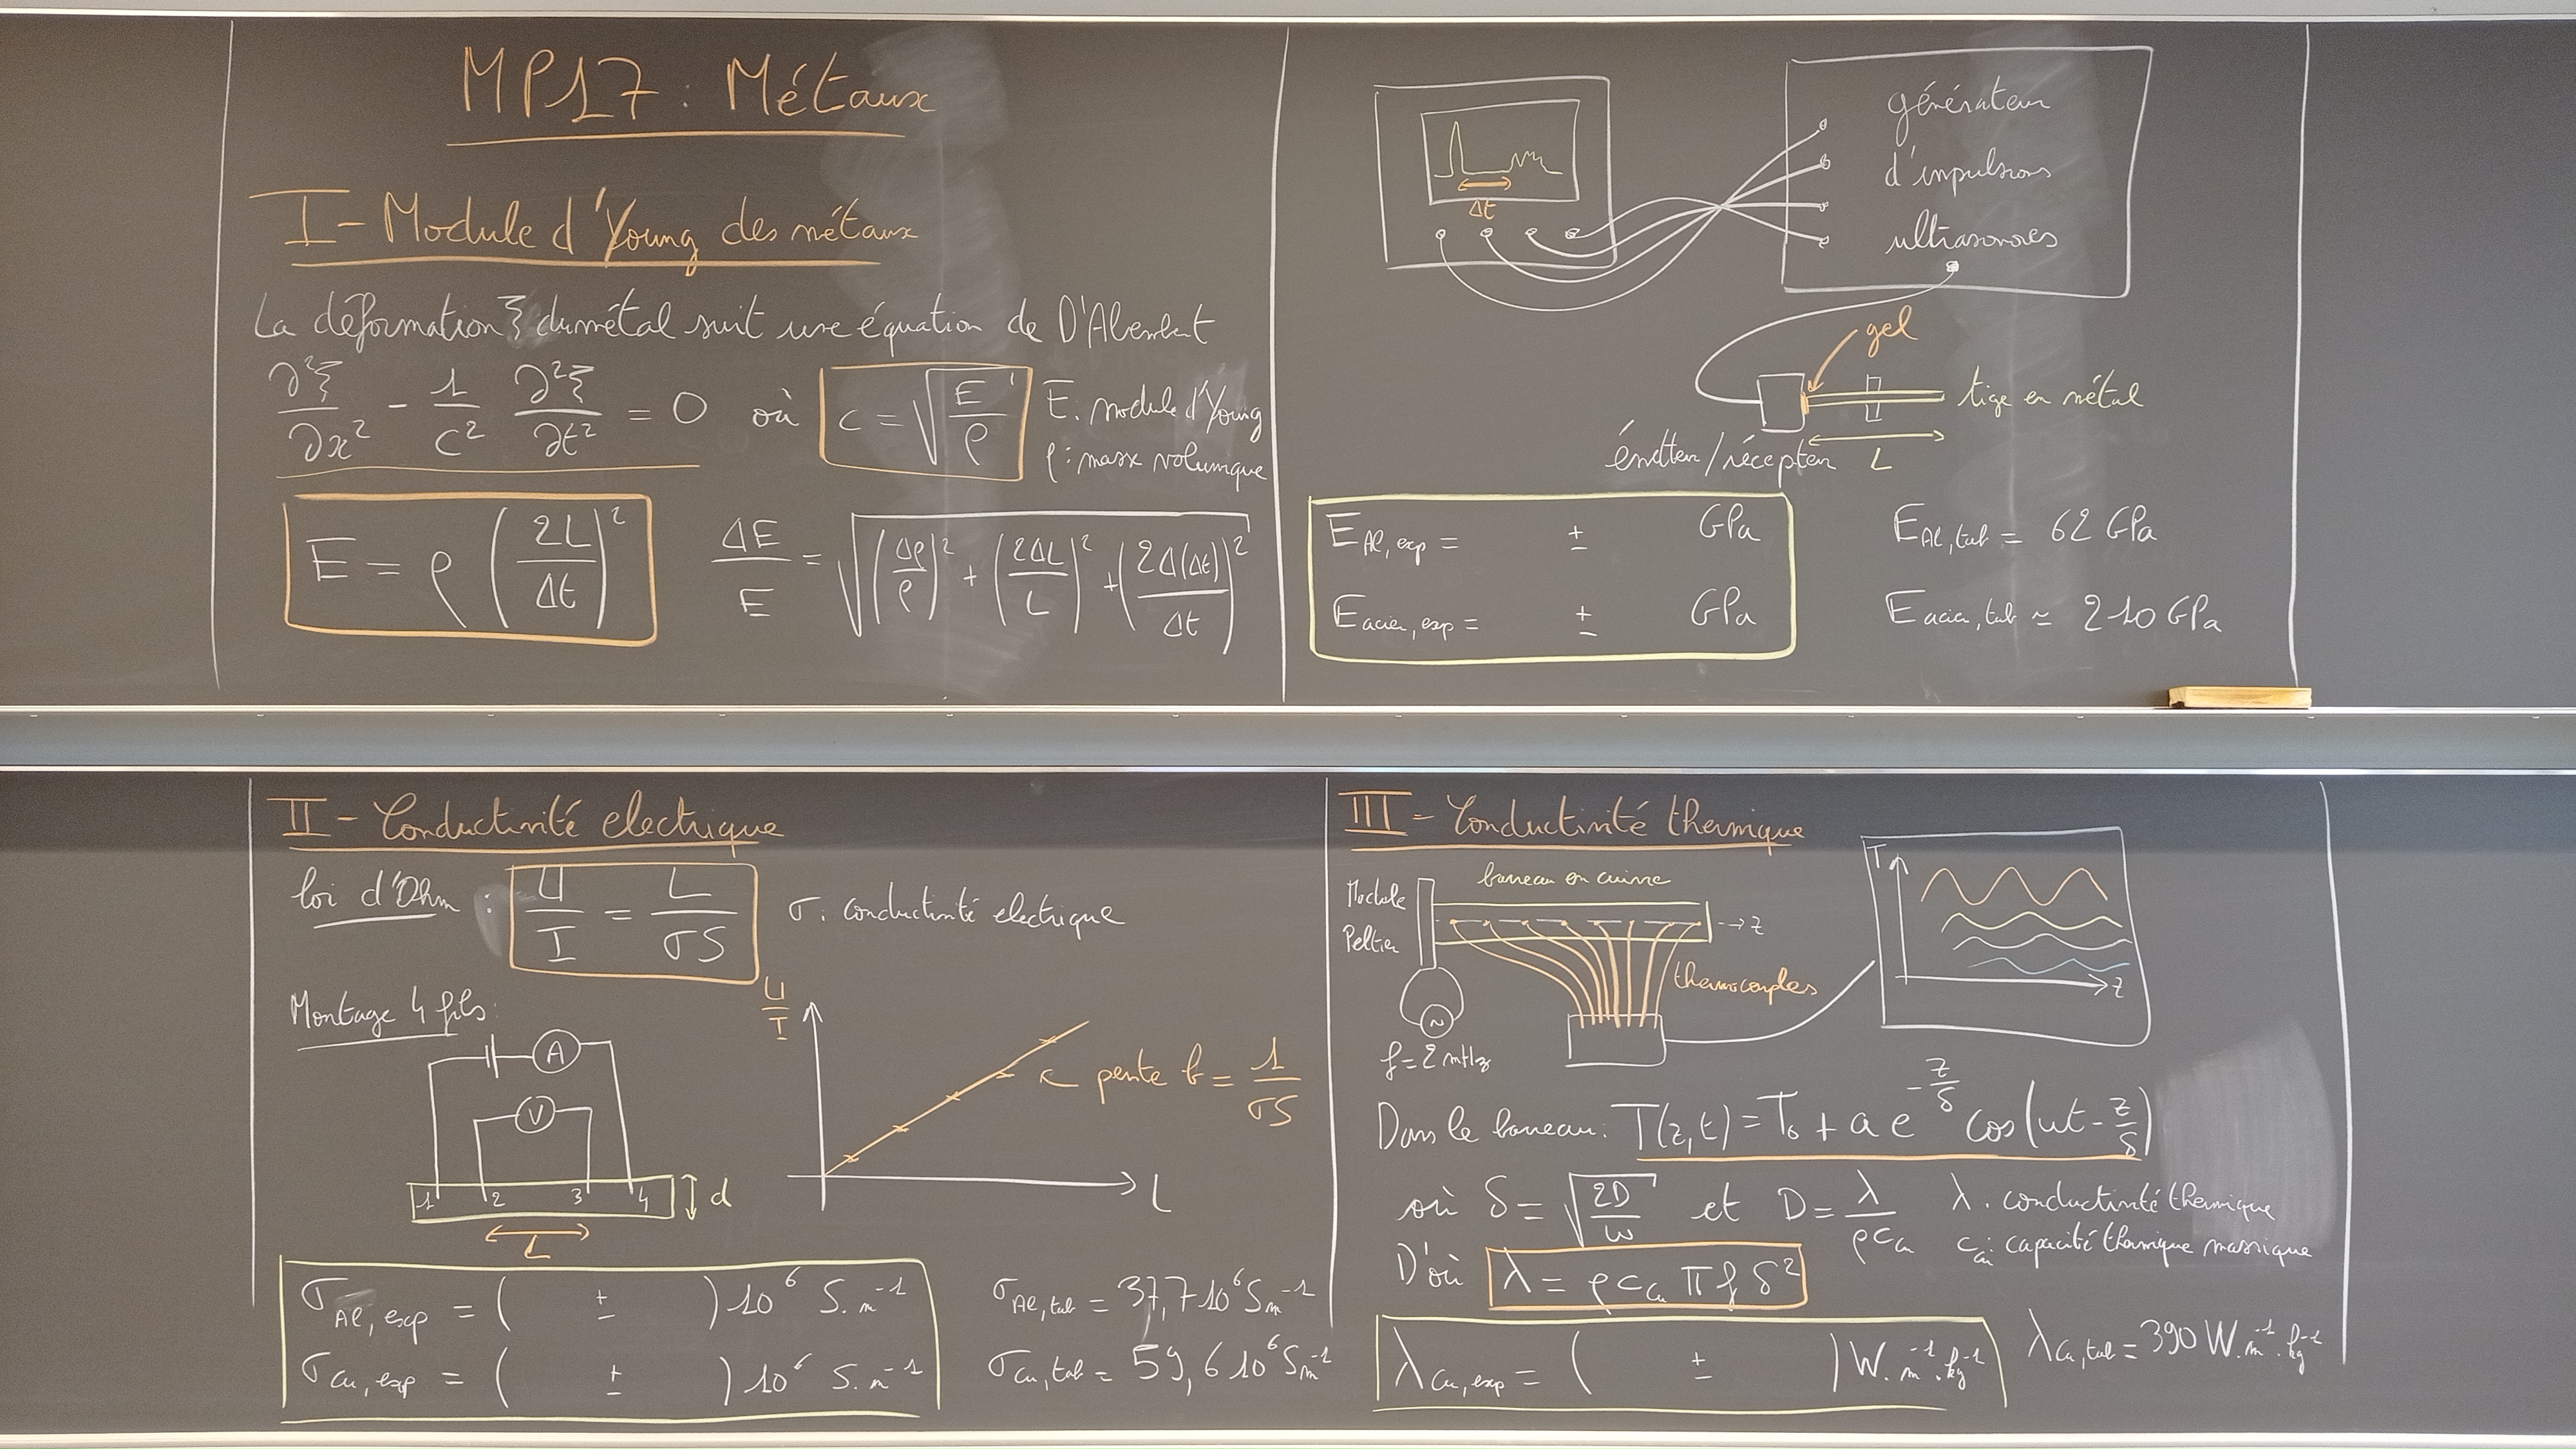 MP17 : Métaux
I - Module d'Young des métaux
La déformation ξ du métal suit une équation de D'Alembert
∂²ξ/∂x² - 1/c² ∂²ξ/∂t² = 0 où c = √(E/ρ)
E : module d'Young
ρ : masse volumique
E = ρ (2L/Δt)²
ΔE/E = √((Δρ/ρ)² + (2ΔL/L)² + (2Δ(Δt)/Δt)²)
Δt
générateur
d'impulsions
ultrasonores
gel
tige en métal
émetteur/récepteur
L
E Al, exp = ± GPa
E Al, tab = 62 GPa
E acier, exp = ± GPa
E acier, tab ≃ 210 GPa
II - Conductivité electrique
loi d'Ohm : U/I = L/σS
σ : conductivité electrique
Montage 4 fils :
A
V
1 2 3 4
d
L
U/I
L
pente b = 1/σS
σ Al, exp = ( ± ) 10⁶ S.m⁻¹
σ Al, tab = 37,7 10⁶ S m⁻¹
σ Cu, exp = ( ± ) 10⁶ S.m⁻¹
σ Cu, tab = 59,6 10⁶ S m⁻¹
III - Conductivité thermique
barreau en cuivre
Module
Peltier
→ z
thermocouples
~
f = 2 mHz
T
z
Dans le barreau : T(z,t) = T₀ + a e^(-z/δ) cos(ωt - z/δ)
où δ = √(2D/ω) et D = λ/ρc Cu
λ : conductivité thermique
c Cu : capacité thermique massique
D'où λ = ρ c Cu π f δ²
λ Cu, exp = ( ± ) W.m⁻¹.kg⁻¹
λ Cu, tab = 390 W.m⁻¹.kg⁻¹